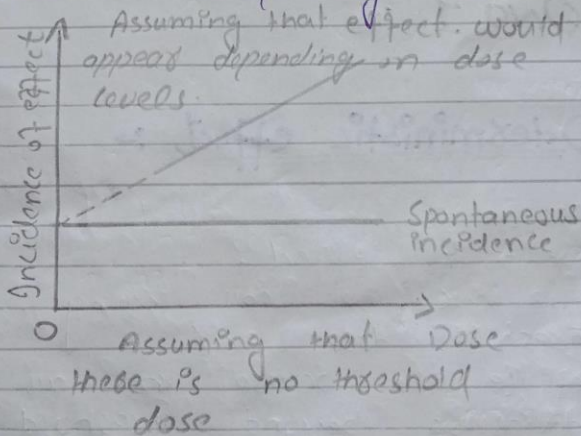 Assuming that effect. would
appear depending on dose
levels.
Incidence of effect
Spontaneous
incidence
0
Assuming that Dose
there is no threshold
dose